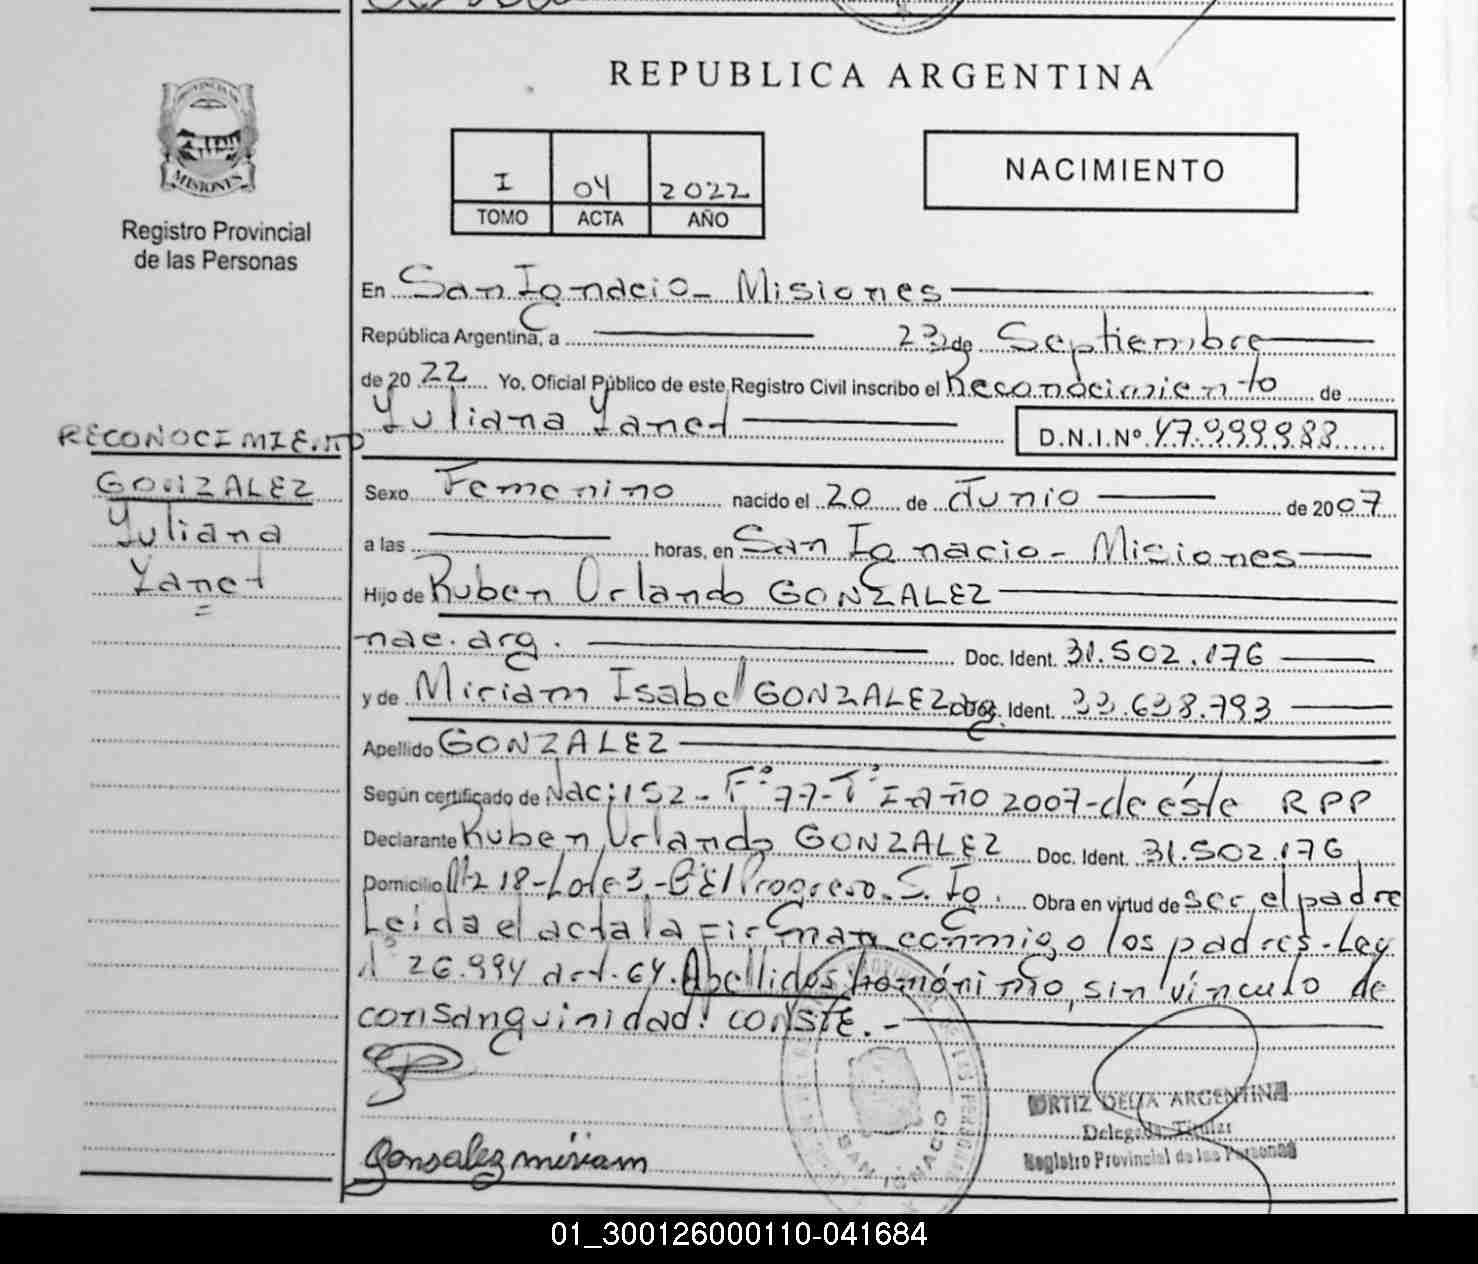 REPUBLICA ARGENTINA
PROVINCIA DE
MISIONES
Registro Provincial
de las Personas
I 04 2022
TOMO ACTA AÑO
NACIMIENTO
En San Ignacio - Misiones
República Argentina, a 23 de Septiembre
de 20 22 Yo, Oficial Público de este Registro Civil inscribo el Reconocimiento de
Yuliana Yanet D.N.I.Nº 47.999.988
RECONOCIMIENTO
GONZALEZ
Yuliana
Yanet
Sexo Femenino nacido el 20 de Junio de 2007
a las horas, en San Ignacio - Misiones
Hijo de Ruben Orlando GONZALEZ
nac. arg. Doc. Ident. 31.502.176
y de Miriam Isabel GONZALEZ Ident. 33.638.793
Apellido GONZALEZ
Según certificado de Nac: 152 - Fº 77 - Tº I - año 2007 - de éste RPP
Declarante Ruben Orlando GONZALEZ Doc. Ident. 31.502.176
Domicilio Mz 18 - Lote 3 - Bº El Progreso. S. Ig. Obra en virtud de ser el padre
Leida el acta la firman conmigo los padres. Ley
Nº 26.994 art. 64. Apellidos homónimo, sin vínculo de
consanguinidad! CONSTE. -
Gonzalez miriam
SAN IGNACIO
ORTIZ DELIA ARGENTINA
Delegada Titular
Registro Provincial de las Personas
01_300126000110-041684